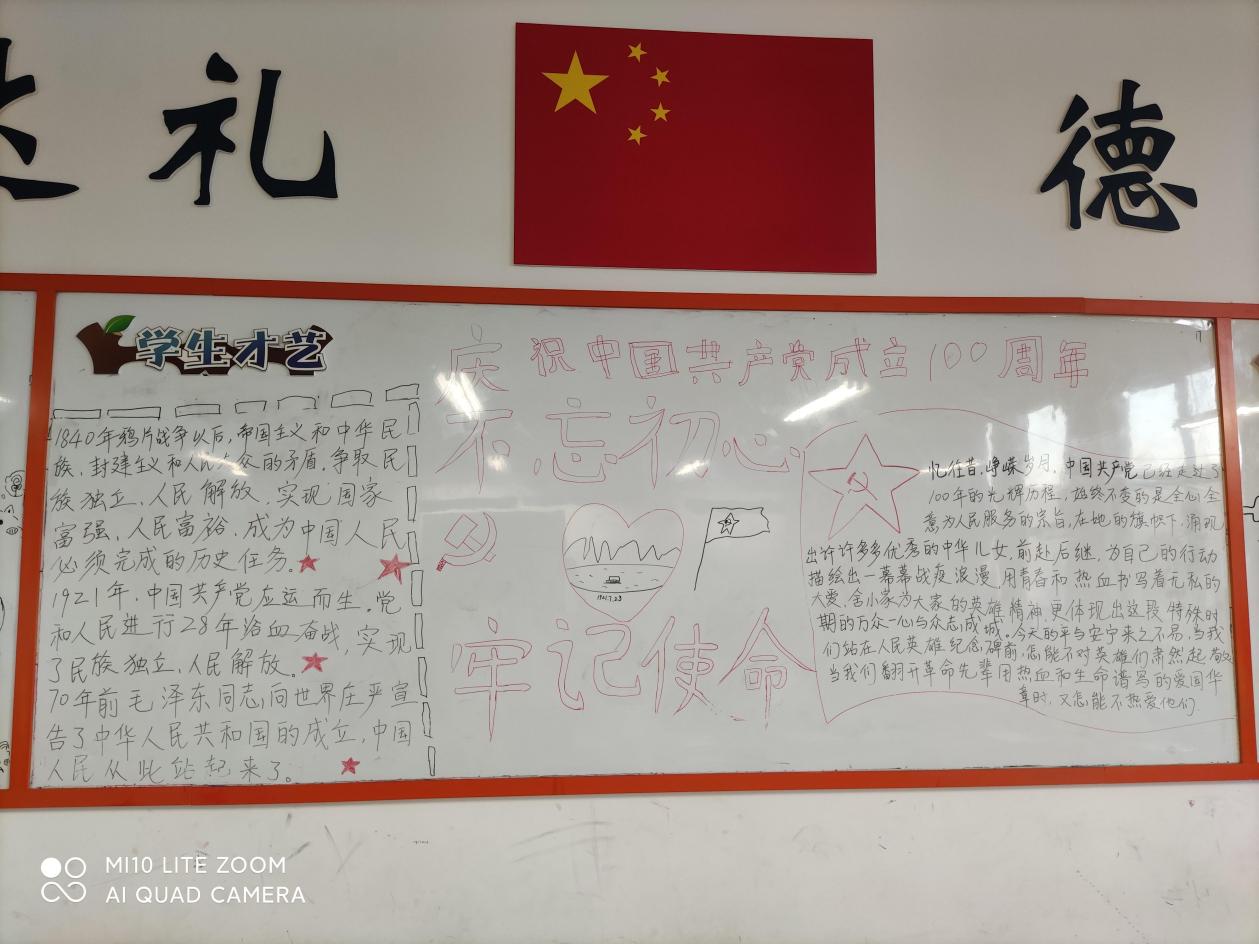 礼
德
学生才艺
庆祝中国共产党成立100周年
不忘初心
牢记使命
1840年鸦片战争以后,帝国主义和中华民
族,封建主义和人民大众的矛盾.争取民
族独立、人民解放.实现国家
富强、人民富裕.成为中国人民
必须完成的历史任务。
1921年,中国共产党应运而生.党
和人民进行28年浴血奋战,实现
了民族独立,人民解放。
70年前毛泽东同志向世界庄严宣
告了中华人民共和国的成立,中国
人民从此站起来了。
1921.7.23
忆往昔,峥嵘岁月.中国共产党已经走过了
100年的光辉历程,始终不变的是全心全
意为人民服务的宗旨,在她的旗帜下,涌现
出许许多多优秀的中华儿女,前赴后继,为自己的行动
描绘出一幕幕战疫浪漫.用青春和热血书写着无私的
大爱.舍小家为大家的英雄精神.更体现出这段特殊时
期的万众一心与众志成城.今天的平与安宁来之不易,当我
们站在人民英雄纪念碑前,怎能不对英雄们肃然起敬
当我们翻开革命先辈用热血和生命谱写的爱国华
章时,又怎能不热爱他们
MI10 LITE ZOOM
AI QUAD CAMERA